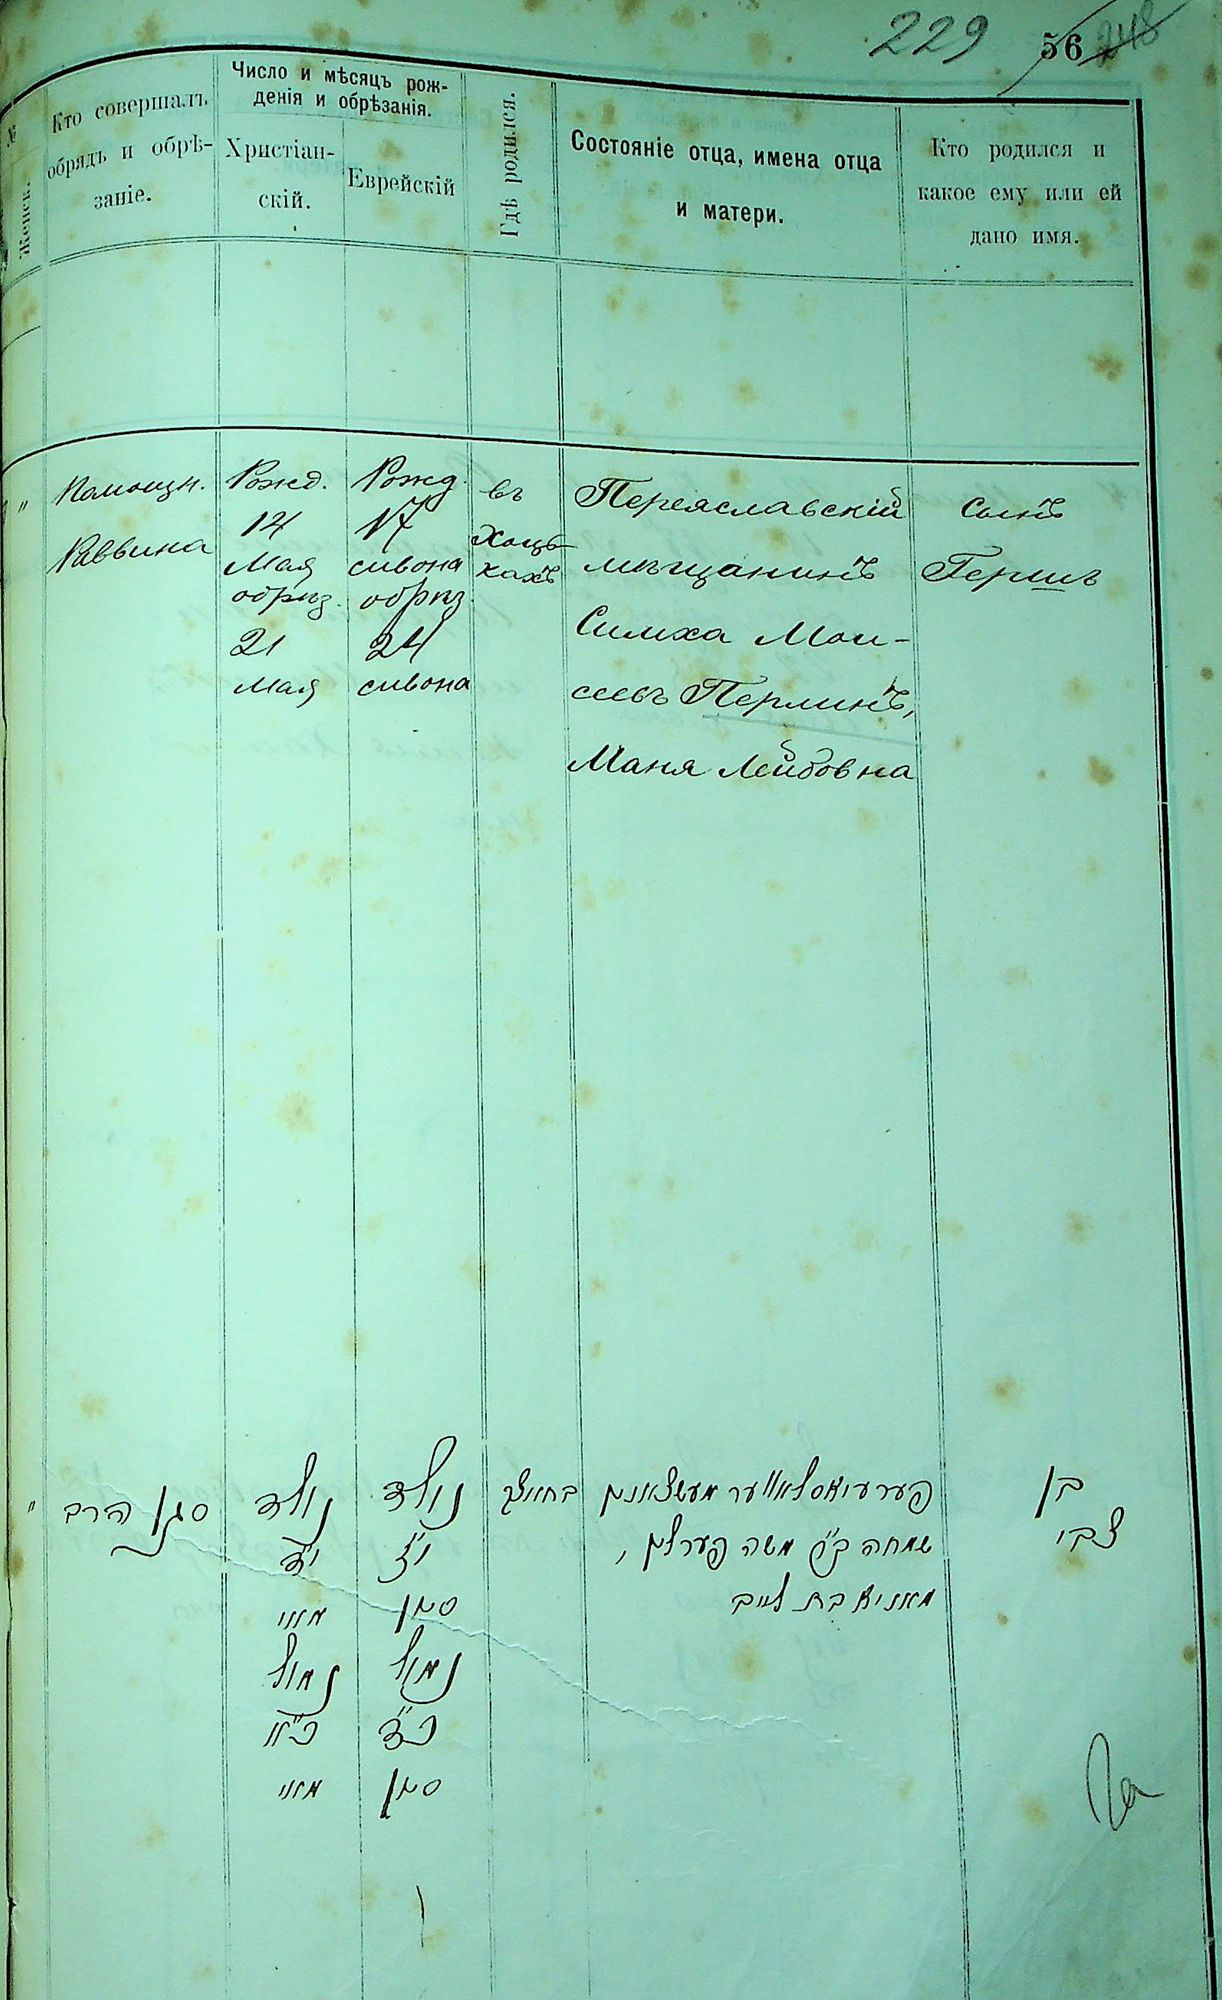 229
56 248
№
Женск.
Кто совершалъ
обрядъ и обрѣ-
заніе.
Число и мѣсяцъ рож-
денія и обрѣзанія.
Христіан-
скій.
Еврейскій
Гдѣ родился.
Состояніе отца, имена отца
и матери.
Кто родился и
какое ему или ей
дано имя.
"
Помощн.
Раввина
Рожд.
14
Мая
обрѣз.
21
Мая
Рожд.
17
сивона
обрѣз.
24
сивона
въ
Хоць-
кахъ
Переяславскій
мѣщанинъ
Симха Мои-
сеевъ Перлинъ,
Маня Лейбовна
сынъ
Гершъ
"
סגן הרב
נולד
י"ד
מאי
נמול
כ"א
מאי
נולד
י"ז
סיון
נמול
כ"ד
סיון
פערעיאסלאווער מעשצאנין
שמחה ב"ר משה פערלין,
מאניא בת לייב
בן
צבי